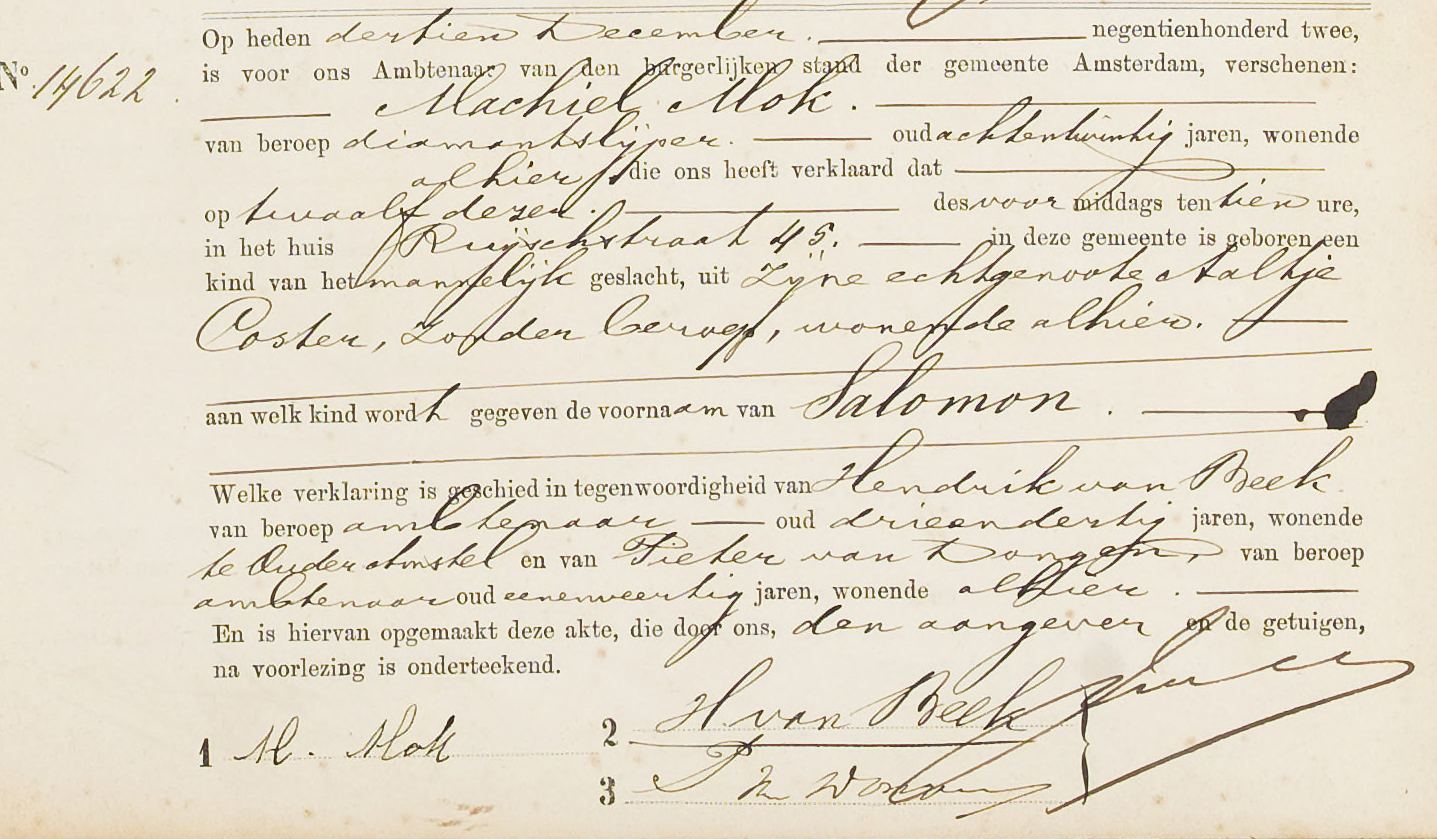 Op heden dertien December. negentienhonderd twee,
No. 14622
is voor ons Ambtenaar van den burgerlijken stand der gemeente Amsterdam, verschenen:
Machiel Mok.
van beroep diamantslijper. oud achtentwintig jaren, wonende
alhier, die ons heeft verklaard dat
op twaalf dezer. des voor middags ten tien ure,
in het huis Ruijschstraat 45. in deze gemeente is geboren een
kind van het mannelijk geslacht, uit zijne echtgenoote Aaltje
Coster, zonder beroep, wonende alhier.
aan welk kind wordt gegeven de voornaam van Salomon.
Welke verklaring is geschied in tegenwoordigheid van Hendrik van Beek
van beroep ambtenaar oud drieendertig jaren, wonende
te Ouder Amstel en van Pieter van Dongen, van beroep
ambtenaar oud eenenveertig jaren, wonende alhier.
En is hiervan opgemaakt deze akte, die door ons, den aangever en de getuigen,
na voorlezing is onderteekend.
1 M. Mok
2 H. van Beek
3 P